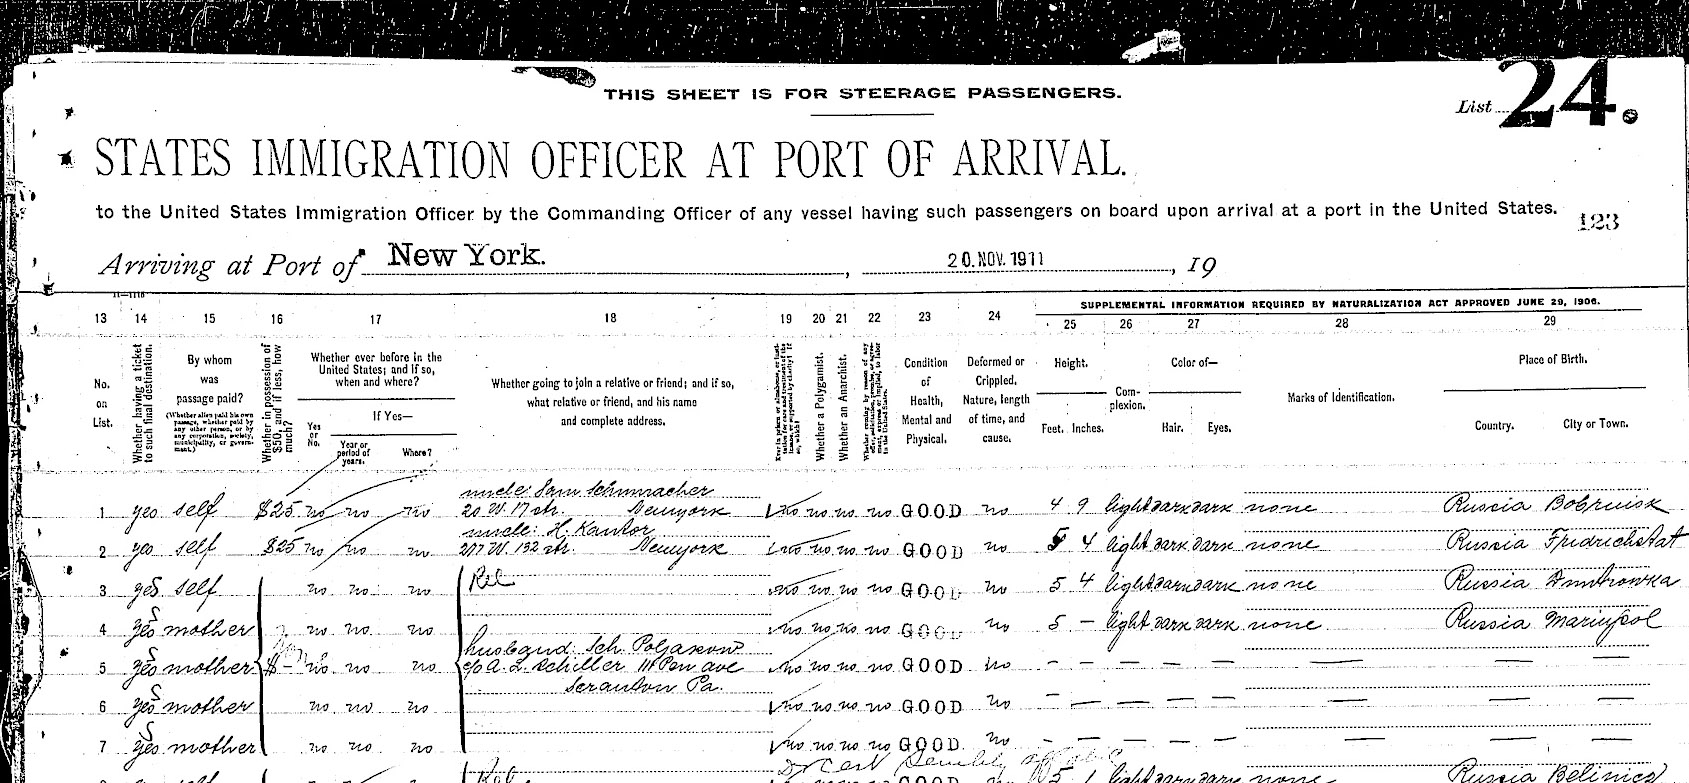 THIS SHEET IS FOR STEERAGE PASSENGERS.
List 24.
STATES IMMIGRATION OFFICER AT PORT OF ARRIVAL.
to the United States Immigration Officer by the Commanding Officer of any vessel having such passengers on board upon arrival at a port in the United States.
123
Arriving at Port of New York. , 20. NOV. 1911 , 19
SUPPLEMENTAL INFORMATION REQUIRED BY NATURALIZATION ACT APPROVED JUNE 29, 1906.
13 14 15 16 17 18 19 20 21 22 23 24 25 26 27 28 29
No. on List.
Whether having a ticket to such final destination.
By whom was passage paid?
(Whether alien paid his own passage, whether paid by any other person, or by any corporation, society, municipality, or government.)
Whether in possession of $50, and if less, how much?
Whether ever before in the United States; and if so, when and where?
Yes or No.
If Yes—
Year or period of years.
Where?
Whether going to join a relative or friend; and if so, what relative or friend, and his name and complete address.
Whether a Polygamist.
Whether an Anarchist.
Condition of Health, Mental and Physical.
Deformed or Crippled. Nature, length of time, and cause.
Height.
Feet. Inches.
Complexion.
Color of—
Hair. Eyes.
Marks of Identification.
Place of Birth.
Country. City or Town.
uncle: Sam Schumacher
1 yes self $25 no no no 20 W. 17 str. Newyork no no no no GOOD no 4 9 light dark dark none Russia Bobruisk
uncle: H. Kantor
2 yes self $25 no no no 217 W. 132 str. Newyork no no no no GOOD no 5 4 light dark dark none Russia Fridrichstat
3 yes self no no no Rel no no no no GOOD no 5 4 light dark dark none Russia
4 yes mother no no no no no no no GOOD no 5 - light dark dark none Russia Mariupol
husband: Sch. Poljakow
5 yes mother $ - no no no c/o A. L. Schiller 111 Pen ave no no no no GOOD no - - - - - - - -
Scranton Pa.
6 yes mother no no no no no no no GOOD no - - - - - - - -
7 yes mother no no no no no no no GOOD no - - - - - - - -
Rel 5 1 light dark dark none Russia